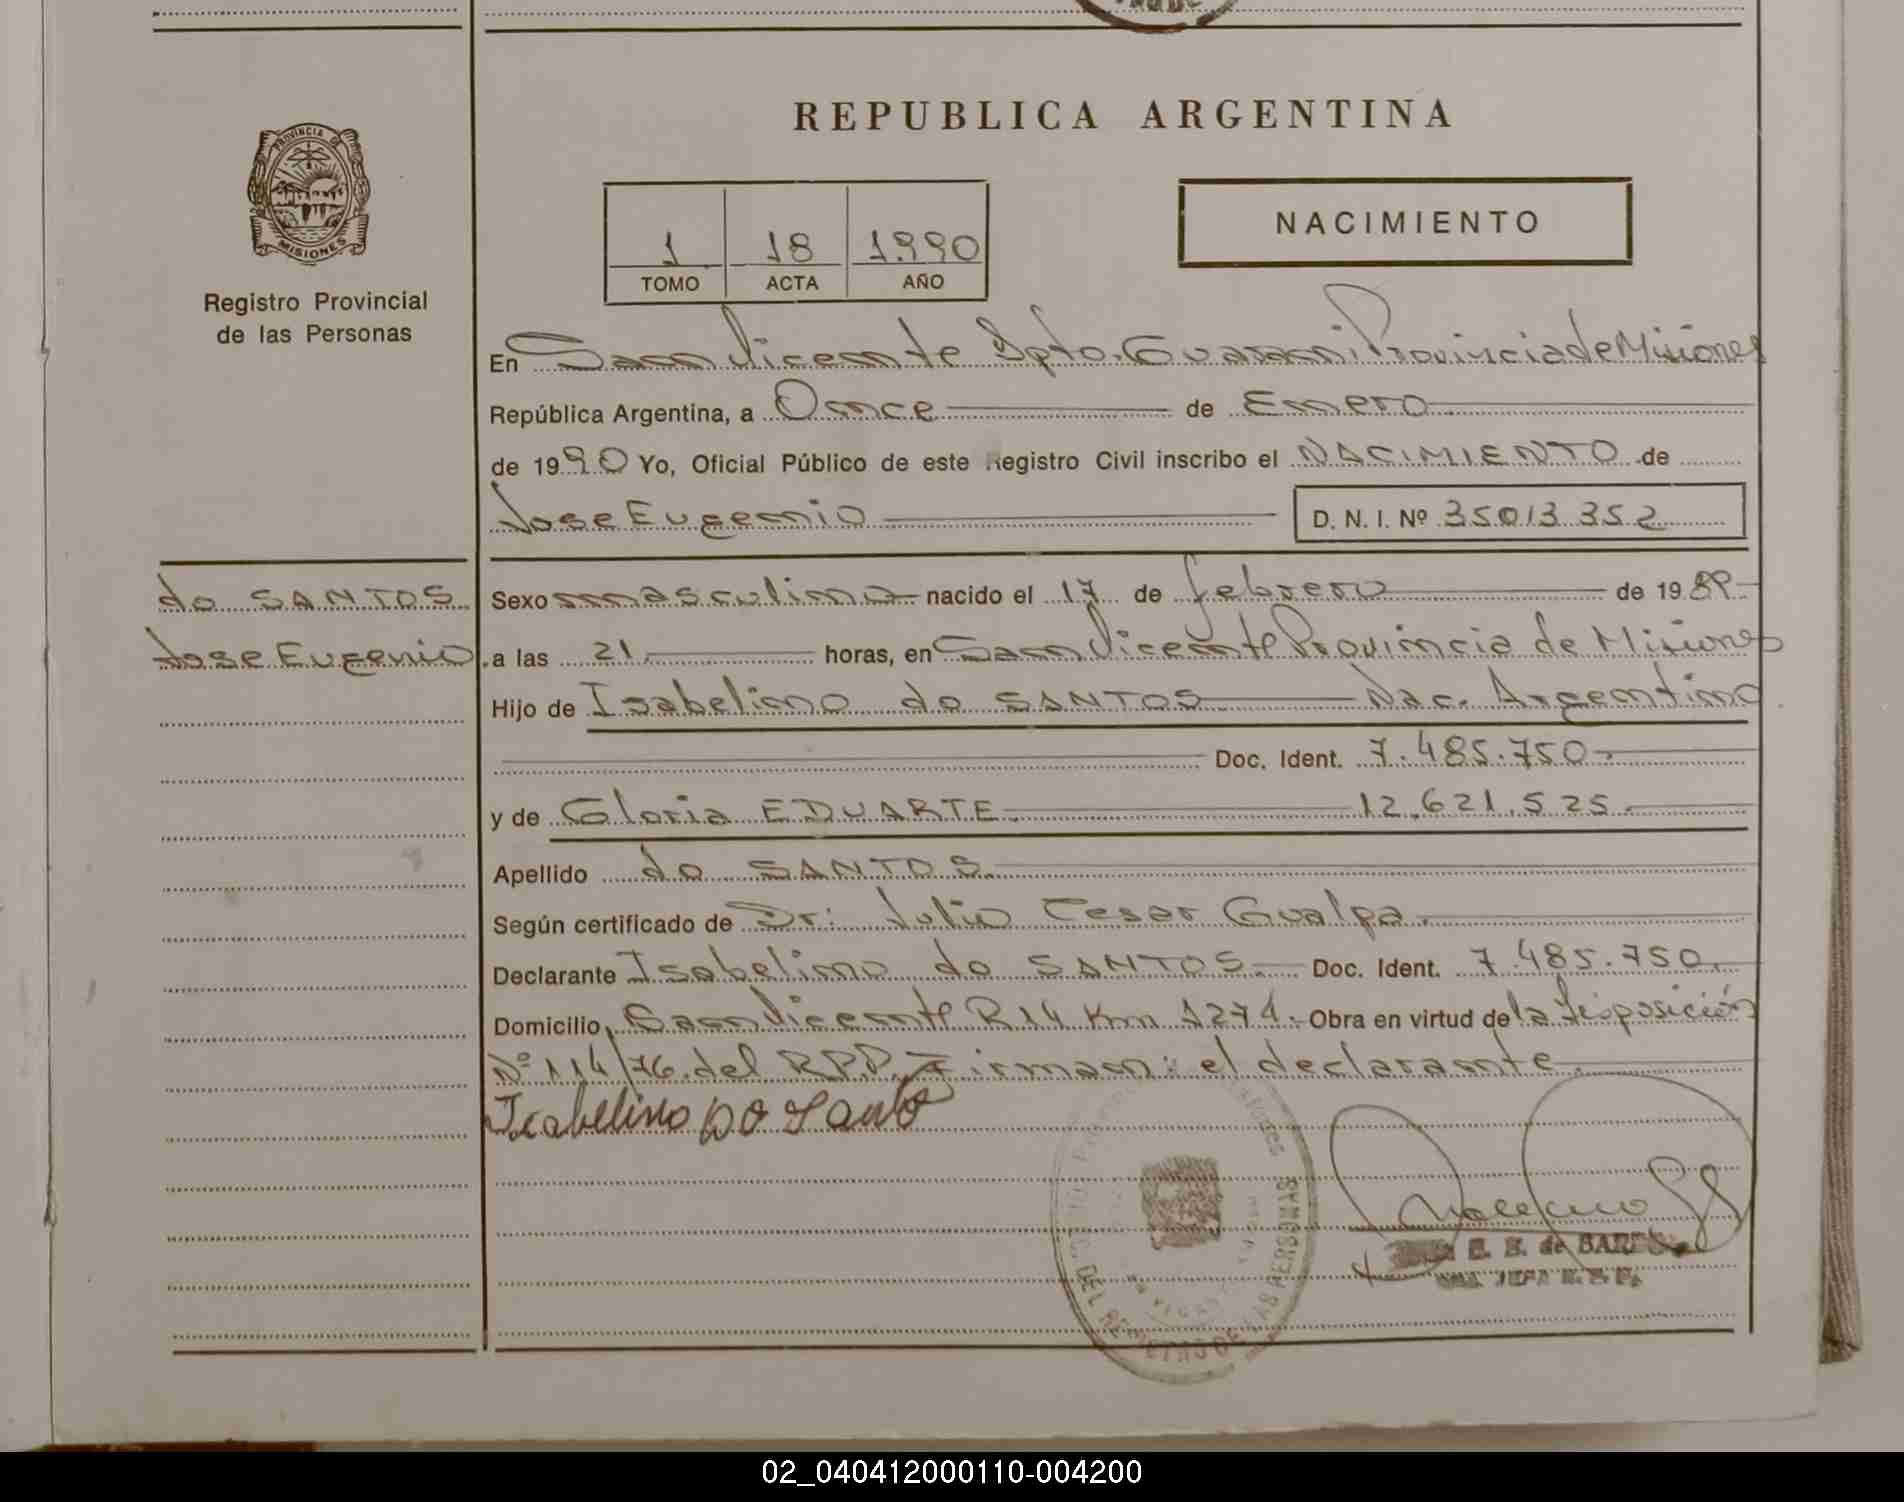 REPUBLICA ARGENTINA
PROVINCIA DE
MISIONES
Registro Provincial
de las Personas
1 18 1.990
TOMO ACTA AÑO
NACIMIENTO
En San Vicente Dpto. Guarani Provincia de Misiones
República Argentina, a Once de Enero
de 1990 Yo, Oficial Público de este Registro Civil inscribo el NACIMIENTO de
Jose Eugenio D. N. I. Nº 35013352
do SANTOS
Jose Eugenio
Sexo masculino nacido el 17 de febrero de 1989.-
a las 21 horas, en San Vicente Provincia de Misiones
Hijo de Isabelino do SANTOS Nac. Argentino
Doc. Ident. 7.485.750-
y de Gloria EDUARTE 12.621.525
Apellido do SANTOS.
Según certificado de Dr: Julio Cesar Gualpa.
Declarante Isabelino do SANTOS. Doc. Ident. 7.485.750.
Domicilio San Vicente R 14 Km 1274.- Obra en virtud de la Disposición
Nº 114/76. del RPP. Firman: el declarante
Isabelino DO Santo
DEL REGISTRO DE LAS PERSONAS
E. B. de
JEFA
02_040412000110-004200